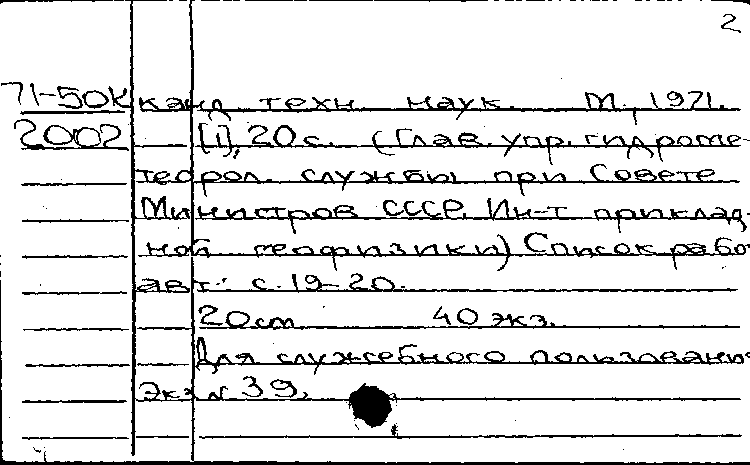 2
71-50К канд. техн. наук. М., 1971.
2002 [1], 20 с. (Глав. упр. гидроме-
теорол. службы при Совете
Министров СССР. Ин-т приклад-
ной геофизики) Список работ
авт.: с. 19-20.
20 cm 40 экз.
Для служебного пользования
Экз № 39.